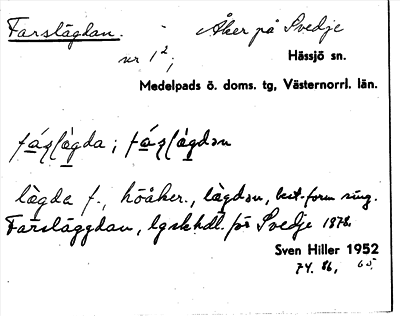 Farslägdan. - Åker på Svedje
nr 1²,
Hässjö sn.
Medelpads ö. doms. tg, Västernorrl. län.
lägda f., höåker., lägdan, best. form sing.
Farsläggdan, lgskhdl. för Svedje 1878.
Sven Hiller 1952
74. 86, 65.